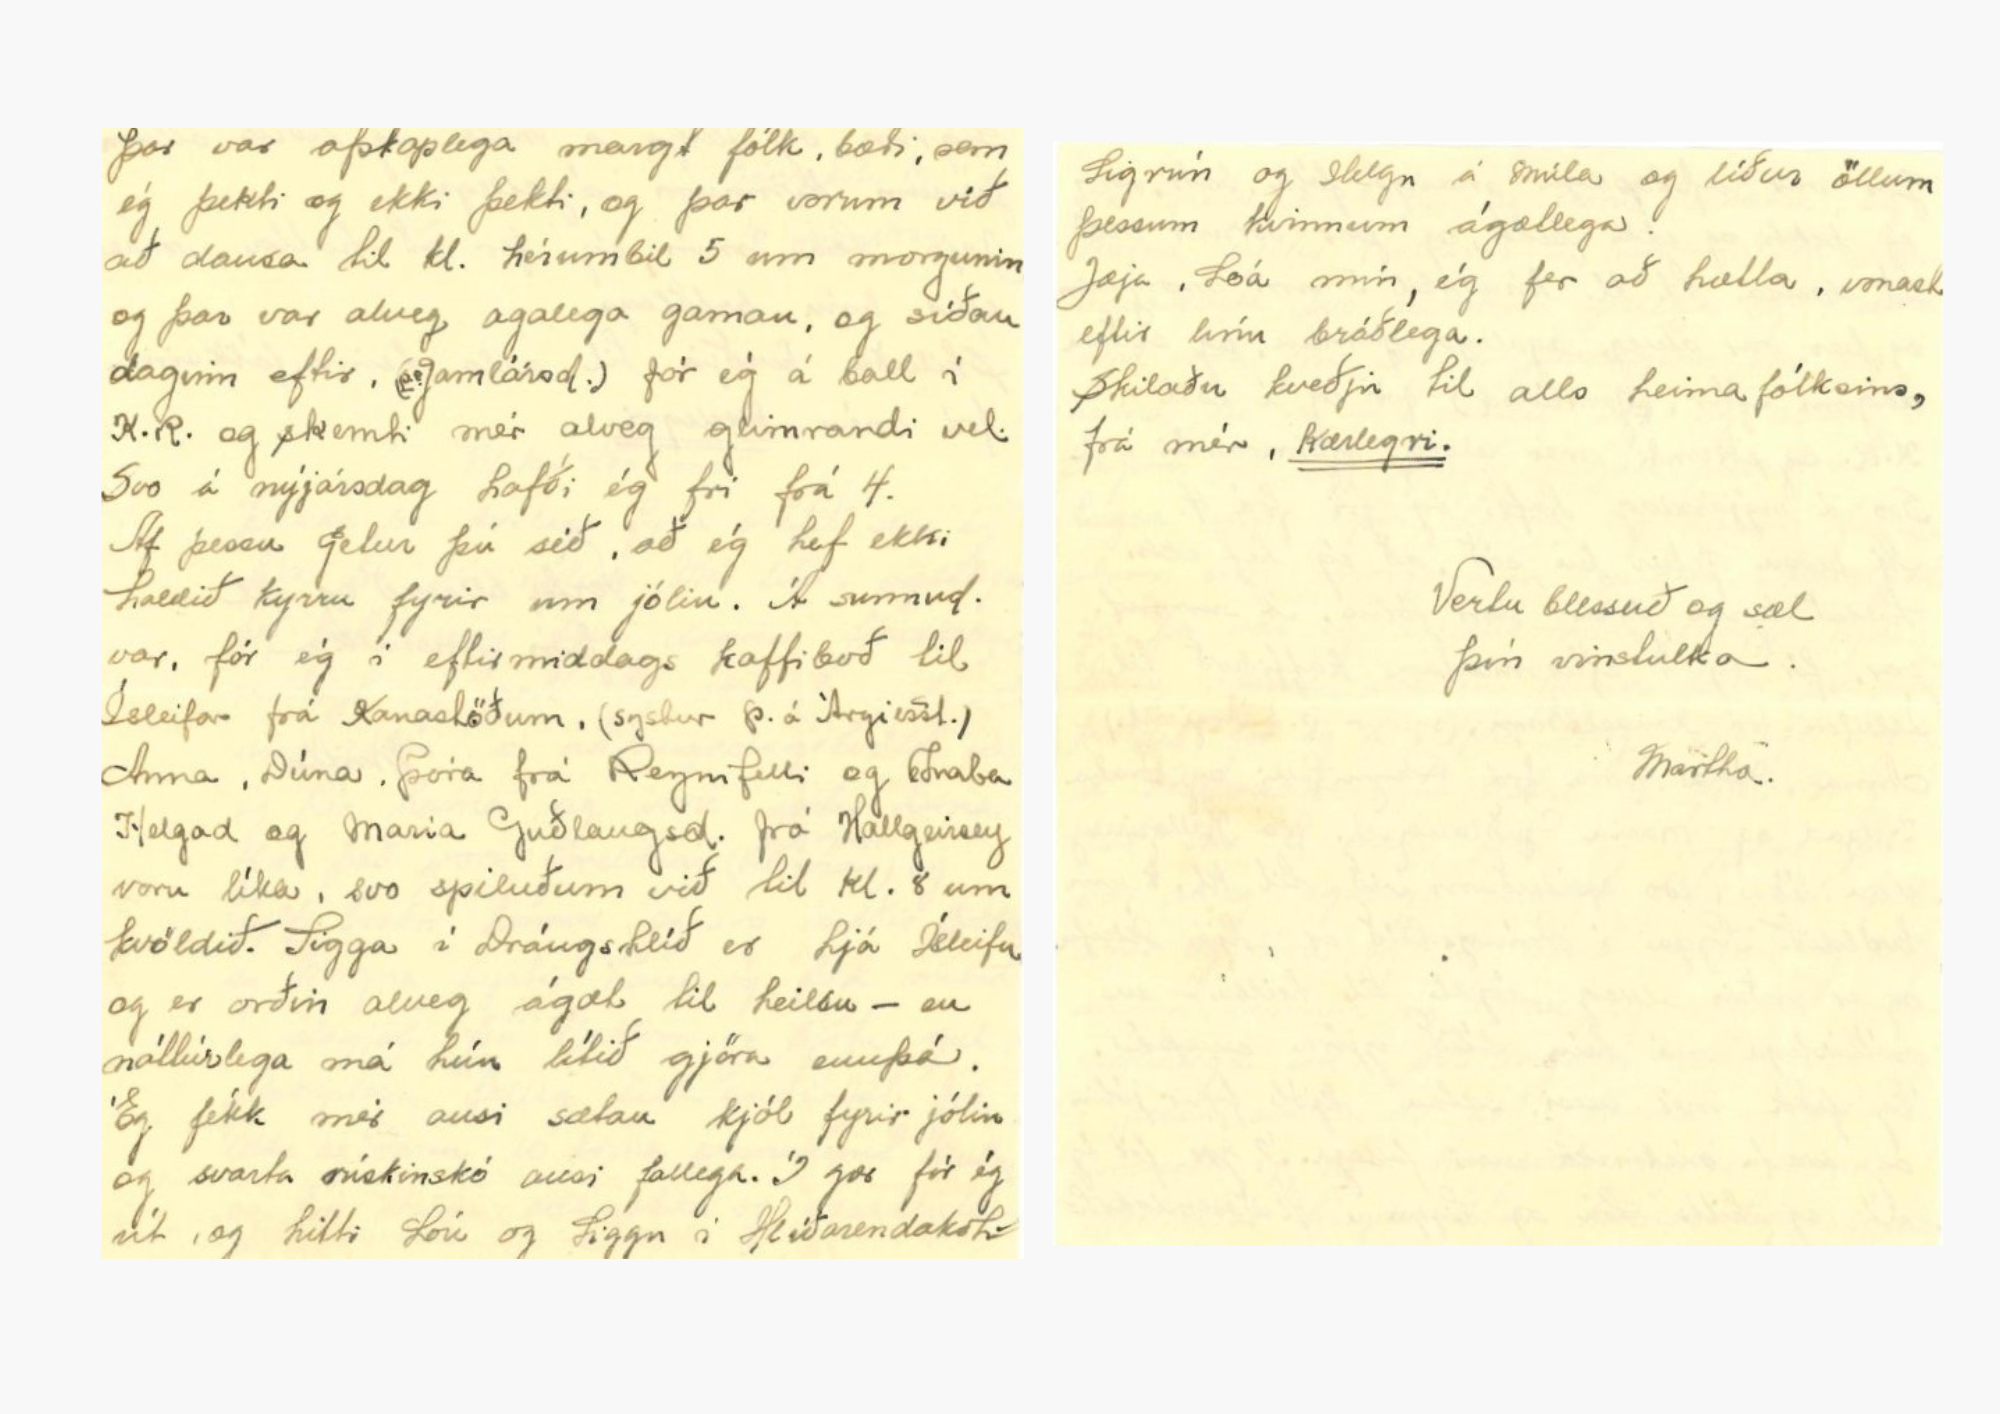 Þar var afskaplega margt fólk, bæði, sem
ég þekti og ekki þekti, og þar vorum við
að dansa til kl. hérumbil 5 um morgunin
og þar var alveg agalega gaman, og síðan
daginn eftir, (Gamlársd.) fór ég á ball í
K.R. og skemti mér alveg glimrandi vel.
Svo á nýjársdag hafði ég frí frá 4.
Af þessu getur þú séð, að ég hef ekki
haldið kyrru fyrir um jólin. Á sunnud.
var, fór ég í eftirmiddags kaffiboð til
Ísleifar frá Kanastöðum, (systur Þ. á Ärgiesst.)
Anna, Dúna, Þóra frá Reynifelli og
Helgad og Maria Guðlaugsd. frá Hallgeirsey
voru líka, svo spiluðum við til kl. 8 um
kvöldið. Sigga í Drángshlíð er hjá Ísleifu
og er orðin alveg ágæt til heilsu – en
náttúrlega má hún lítið gjöra ennþá.
Ég fékk mér ansi sætan kjól fyrir jólin
og svarta rúskinskó ansi fallega. Í gær fór ég
út, og hitti Lóu og Siggu í Hlíðarendakoti
Sigrún og Helgu á Múla og líður öllum
þessum kvinnum ágætlega.
Jæja, Lóa mín, ég fer að hætta, vonast
eftir línu bráðlega.
Skilaðu kveðju til alls heimafólksins,
frá mér, kærlegri.
Vertu blessuð og sæl
þín vinstulka.
Martha.